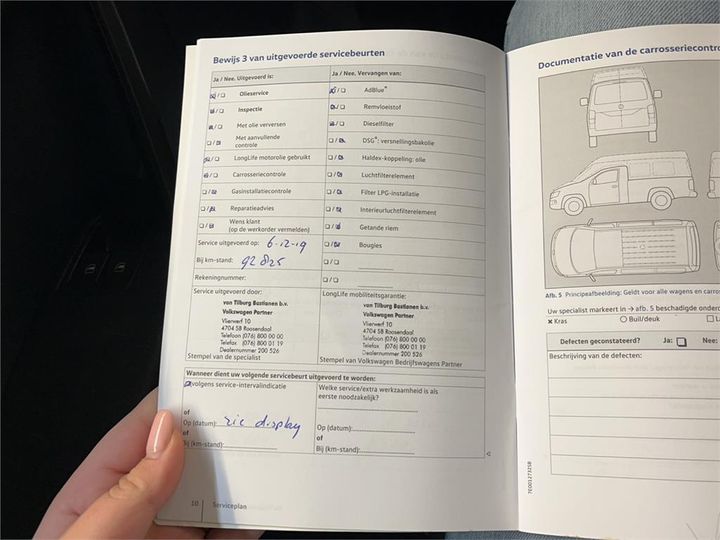 Bewijs 3 van uitgevoerde servicebeurten
Ja / Nee. Uitgevoerd is:
Ja / Nee. Vervangen van:
Olieservice
AdBlue®
Inspectie
Remvloeistof
Met olie verversen
Dieselfilter
Met aanvullende
controle
DSG®: versnellingsbakolie
LongLife motorolie gebruikt
Haldex-koppeling: olie
Carrosseriecontrole
Luchtfilterelement
Gasinstallatiecontrole
Filter LPG-installatie
Reparatieadvies
Interieurluchtfilterelement
Wens klant
(op de werkorder vermelden)
Getande riem
Service uitgevoerd op: 6-12-19
Bougies
Bij km-stand: 92825
Rekeningnummer:
Service uitgevoerd door:
van Tilburg Bastianen b.v.
Volkswagen Partner
Vlierwerf 10
4704 SB Roosendaal
Telefoon (076) 800 00 00
Telefax (076) 800 01 19
Dealernummer 200 526
Stempel van de specialist
LongLife mobiliteitsgarantie:
van Tilburg Bastianen b.v.
Volkswagen Partner
Vlierwerf 10
4704 SB Roosendaal
Telefoon (076) 800 00 00
Telefax (076) 800 01 19
Dealernummer 200 526
Stempel van Volkswagen Bedrijfswagens Partner
Wanneer dient uw volgende servicebeurt uitgevoerd te worden:
volgens service-intervalindicatie
of
Op (datum): zie display
of
Bij (km-stand):
Welke service/extra werkzaamheid is als
eerste noodzakelijk?
Op (datum):
of
Bij (km-stand):
10 Serviceplan
Documentatie van de carrosseriecontro
Afb. 5 Principeafbeelding: Geldt voor alle wagens en carros
Uw specialist markeert in → afb. 5 beschadigde onderd
Kras Buil/deuk
Defecten geconstateerd? Ja: Nee:
Beschrijving van de defecten:
7E0012732SB